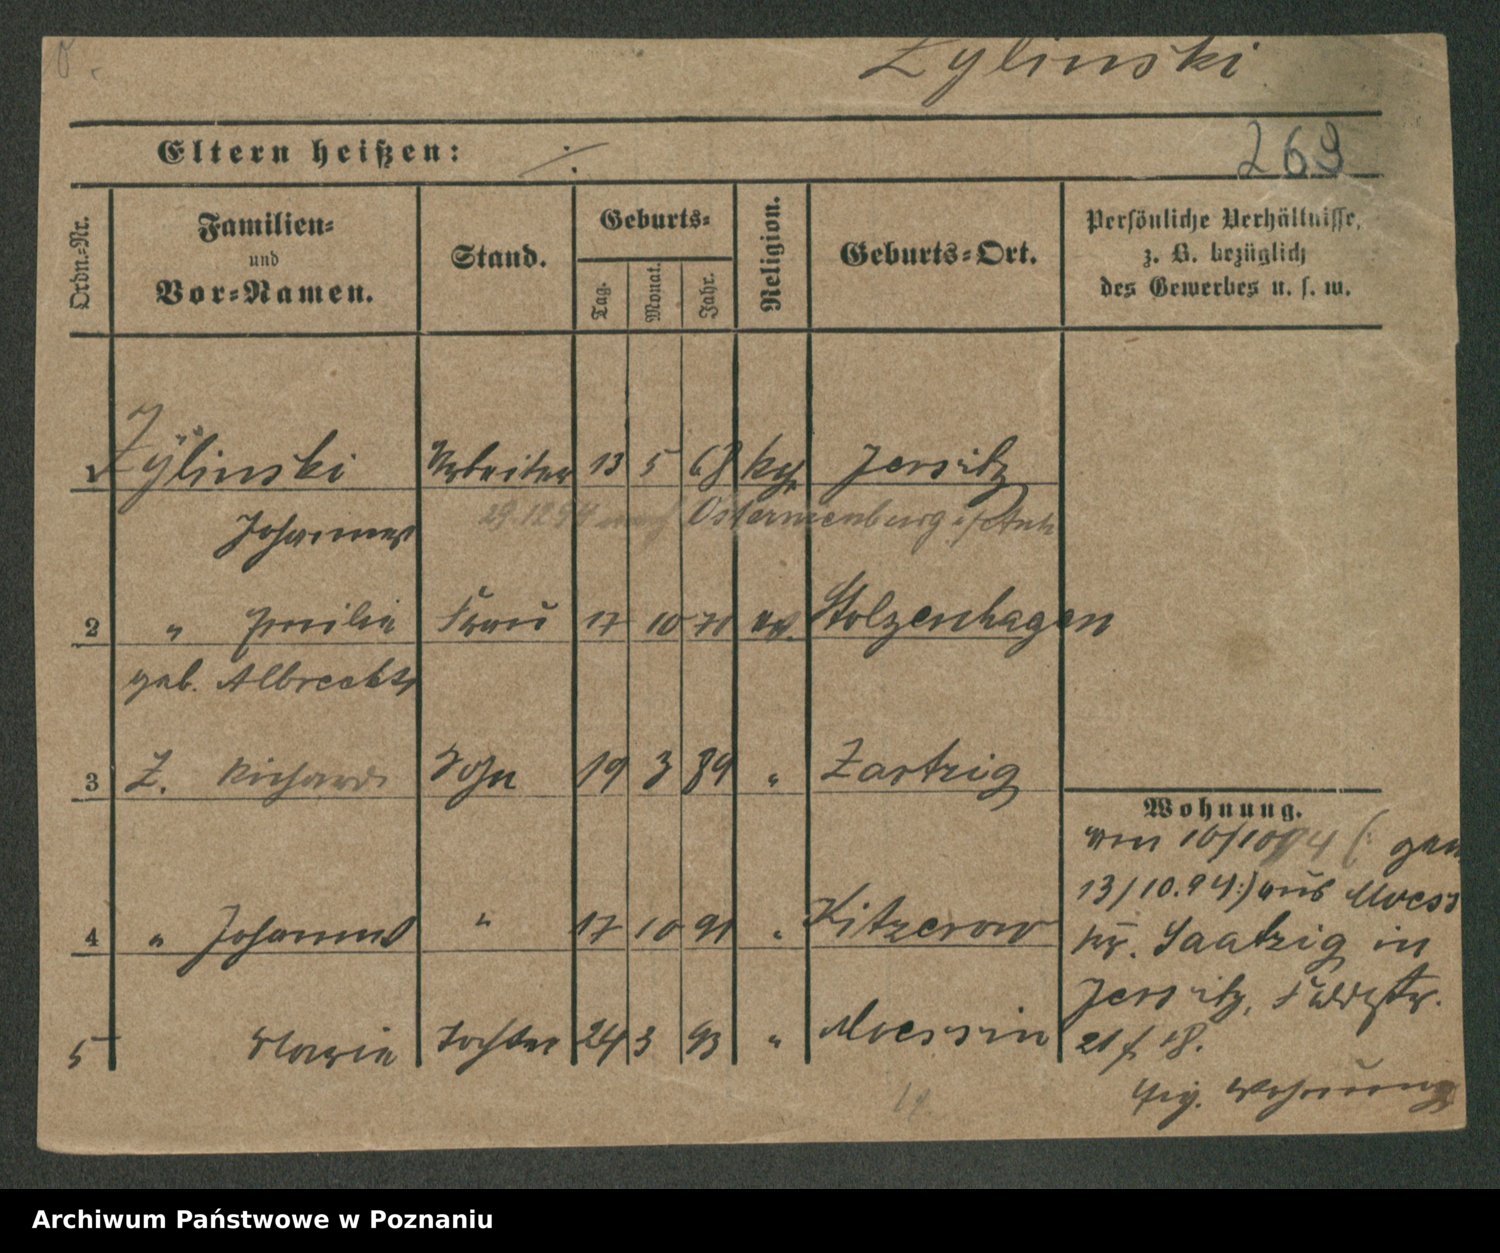 Zylinski
Eltern heißen: ·/·
263
Ordn.-Nr.
Familien-
und
Vor-Namen.
Stand.
Geburts-
Tag.
Monat.
Jahr.
Religion.
Geburts-Ort.
Persönliche Verhältnisse,
z. B. bezüglich
des Gewerbes u. s. w.
1 Zÿlinski Arbeiter 13 5 68 kath Jersitz
Johannes 29.12.94 nach Osternienburg i/Anh
2 " Emilie Frau 17 10 71 ev. Stolzenhagen
geb. Albrecht
3 Z. Richard Sohn 19 3 89 " Zartzig
4 " Johannes " 17 10 91 " Kitzerow
5 Marie Tochter 24 3 93 " Moessin
Wohnung.
am 10/10 94 (: gem
13/10.94:) aus Moess
Kr. Saatzig in
Jersitz, Feldstr.
21 f 18.
Eig. Wohnung
Archiwum Państwowe w Poznaniu